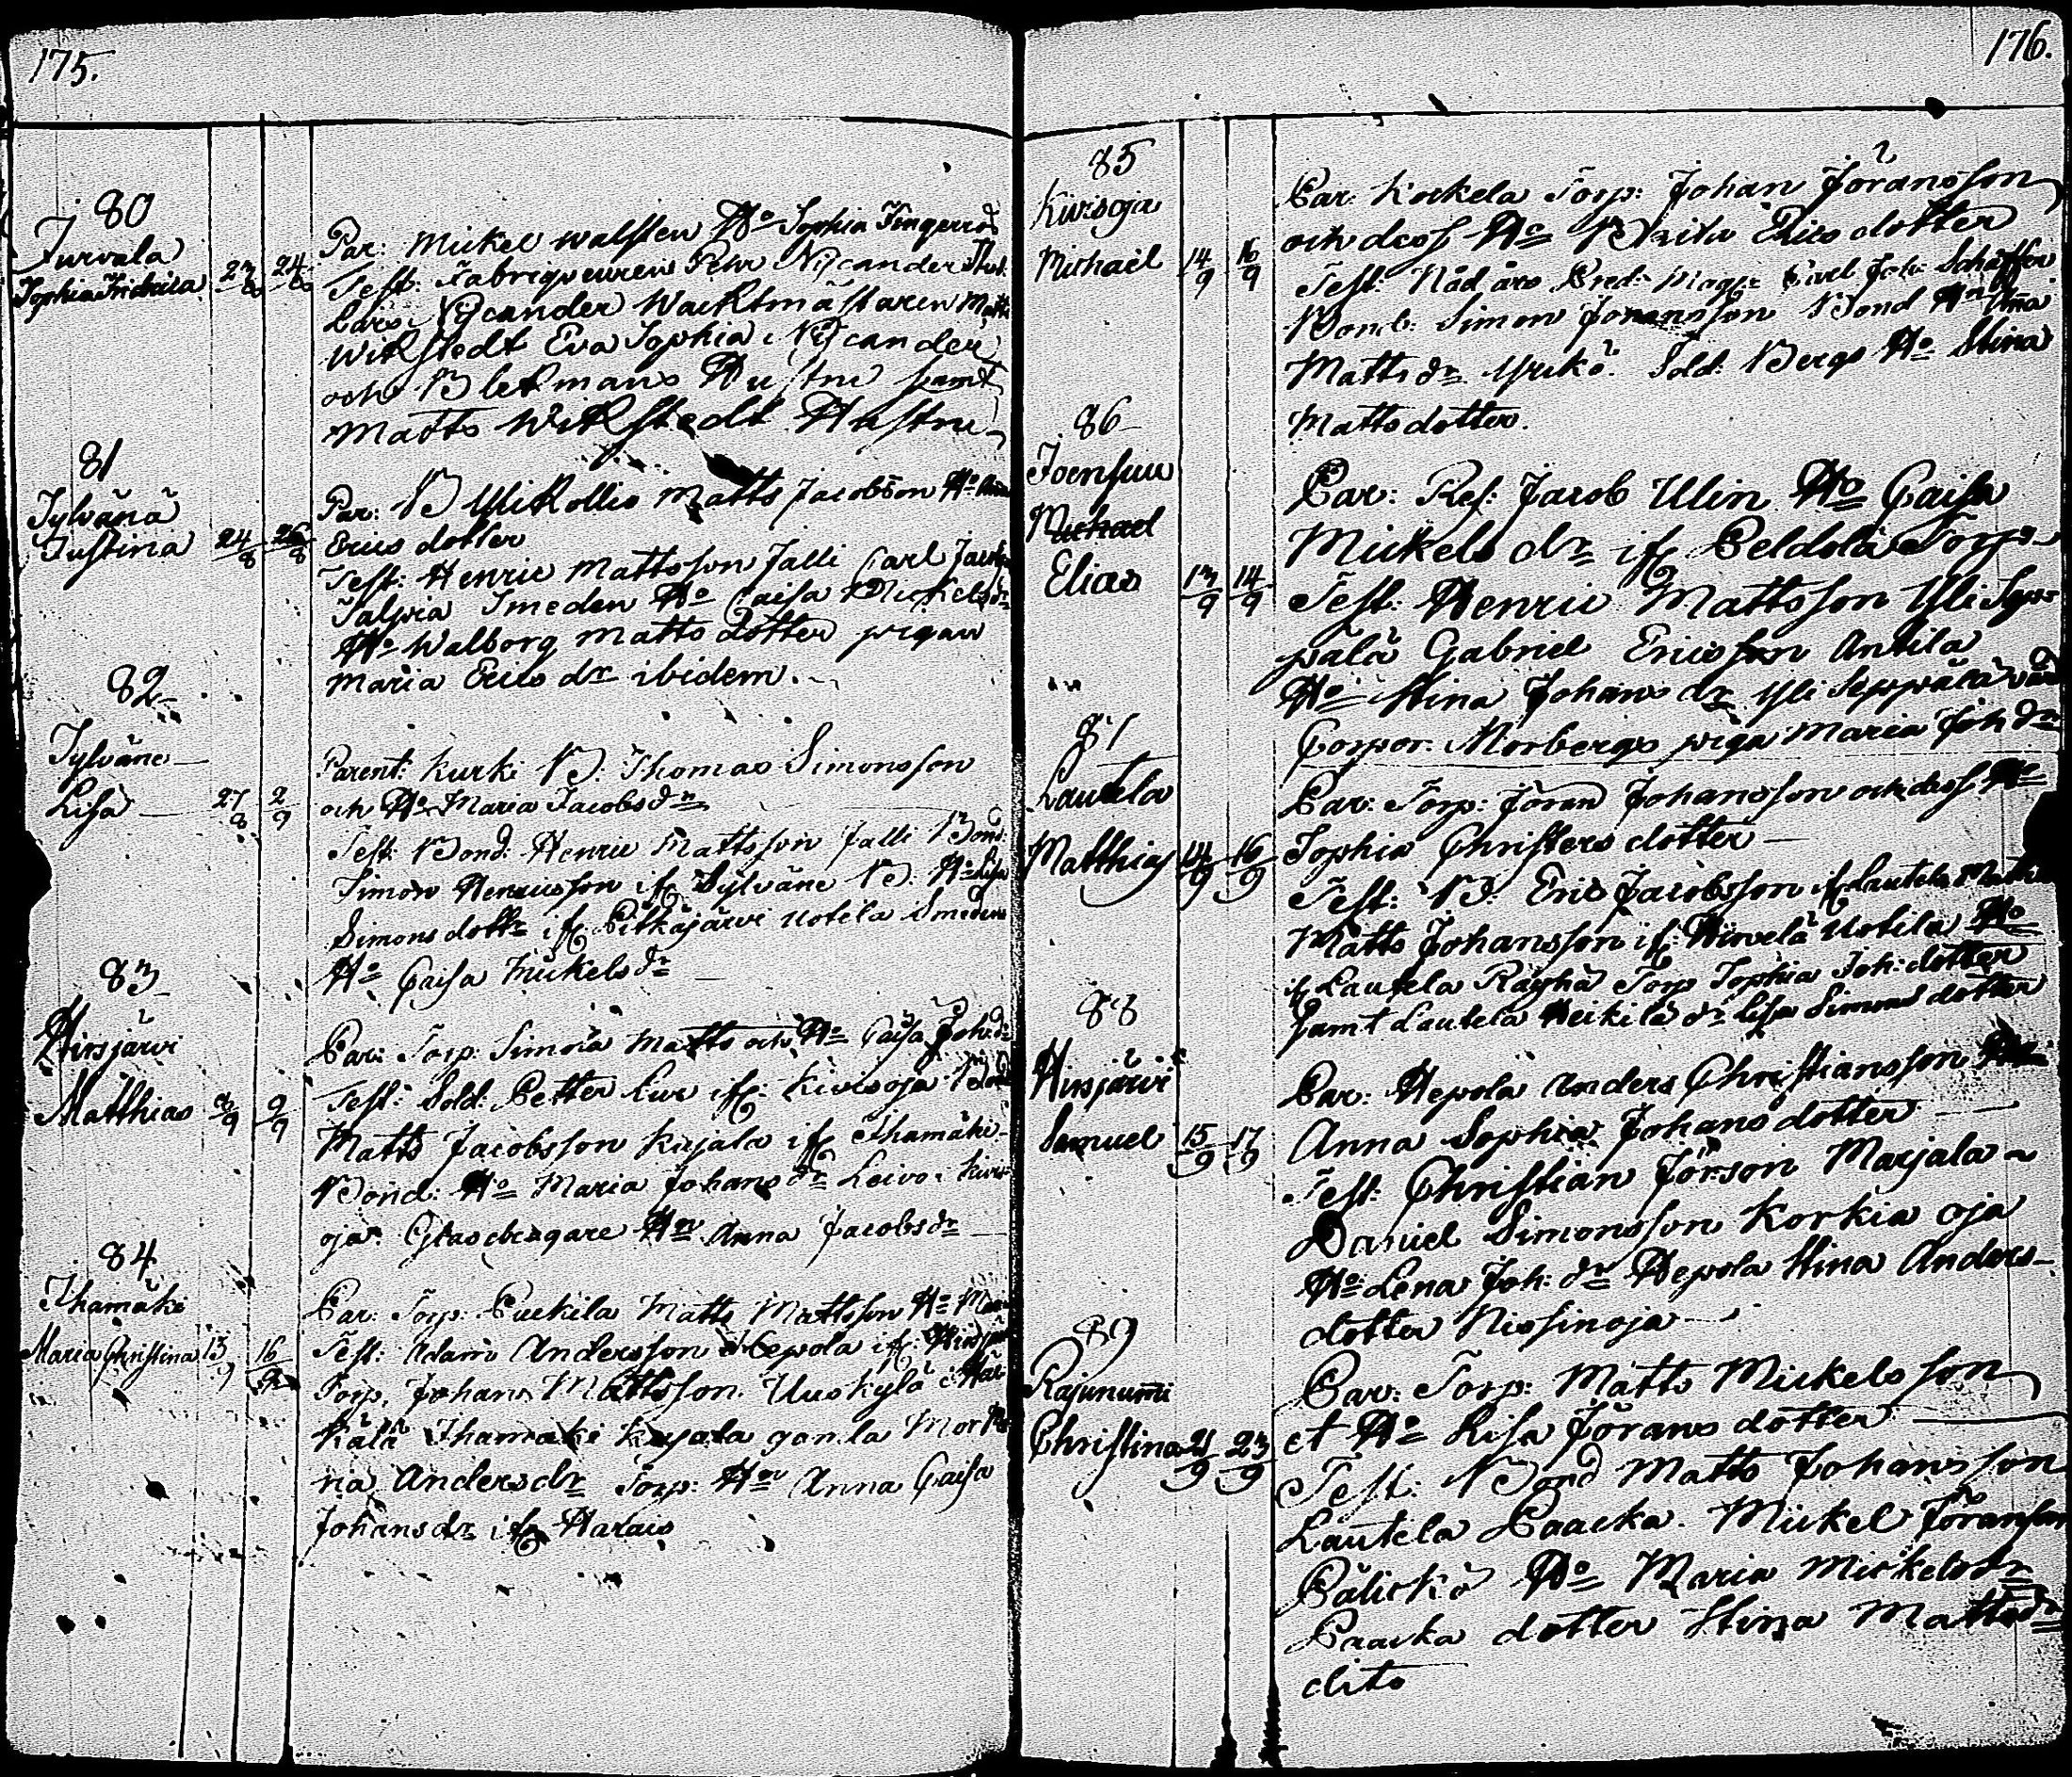 175.
80
Turvala
Sophia Fridrica 23/8 24/8
Par: Mickel Walsten Ho Sophia Fingerroos
Test: Fabriqueuren Pehr Nycander Stud.
Lars Nycander Wacktmästaren Matts
Wikstedt Eva Sophia Nycander
och Blekmans Hustru samt
Matts Wikstedt Hustru
81
Sylvänä
Justina 24/8 26/8
Par: B Ylikollis Matts Jacobsson Ho
Erics dotter
Test: Henric Mattsson Jalli Carl
Salpia Smeden Ho Caisa Michels dr
Ho Walborg Matts dotter pigan
Maria Erics dr ibidem.
82
Sylväne
Lisa 27/8 2/9
Parent: Kurki B: Thomas Simonsson
och Ho Maria Jacobs dr
Test: Bond: Henric Mattsson Jalli Bond:
Simon Henricsson if Sylväne B: Ho Lisa
Simons dottr if Pitkäjärvi Uotila Smedens
Ho Caisa Mickels dr
83
Hirsjärvi
Matthias 9/9
Par: Torp: Simola Matts och Ho Caisa Joh: dr
Test: Sold: Petter Kur if: Kivisoja Bond
Matts Jacobsson Kujala if Ihamäki
Bond: Ho Maria Johans dr Leivo: Kivis
oja Glasebragare Hu Anna Jacobs dr
84
Ihamäki
Maria Christina 13/9 16/9
Par: Torp: Puckila Matts Mattsson Ho
Test: Adam Andersson Hepola if: Hirsjär
Torp. Johan Mattsson Uuskylä i Här
kälä Ihamäki Kujala gamla Mor
na Anders dr Torp: Hu Anna Caisa
Johans dr if Harais
176.
85
Kivisoja
Michael 14/9 16/9
Par: Korkela Torp: Johan Jöransson
och dess Ho Brita Erics dotter
Test: Nåd års Pred: Mag: Carl Joh: Scheffer
Bond: Simon Joransson Bond Hu Ana
Matts dr Yrikö. Sold: Bergs Ho Stina
Matts dotter.
86
Joensuu
Michael
Elias 13/9 14/9
Par: Ref: Jacob Ulin Ho Caisa
Mickels dr if Peldola Torp
Test: Henric Mattsson Yli Sep
pälä Gabriel Ericsson Antila
Ho Stina Johans dr Yli Seppälä
Corpor: Norbergs piga Maria Joh dr
87
Lautela
Matthias 14/9 16/9
Par: Torp: Jöran Johansson och dess Ho
Sophia Christers dotter
Test: B: Eric Jacobsson if Lautela
Matts Johansson if: Hirvelä Uotila Ho
if Lautela Räyhä Torp Sophia Joh: dotter
samt Lautela Heikilä dr Lisa Simons dotter
88
Hirsjärvi
Samuel 15/9 17/9
Par: Hepola Anders Christiansson
Anna Sophia Johans dotter
Test: Christian Jörson Marjala
Daniel Simonsson Korkia oja
Ho Lena Joh: dr Hepola Stina Anders
dotter Nissinoja
89
Rajunumi
Christina 21/9 23/9
Par: Torp: Matts Mickelsson
et Ho Lisa Jörans dotter
Test: Bond Matts Johansson
Lautela Paacka. Mickel Jöransson
Pälickö Ho Maria Mickels dr
Paacka dotter Stina Matts dr
dito